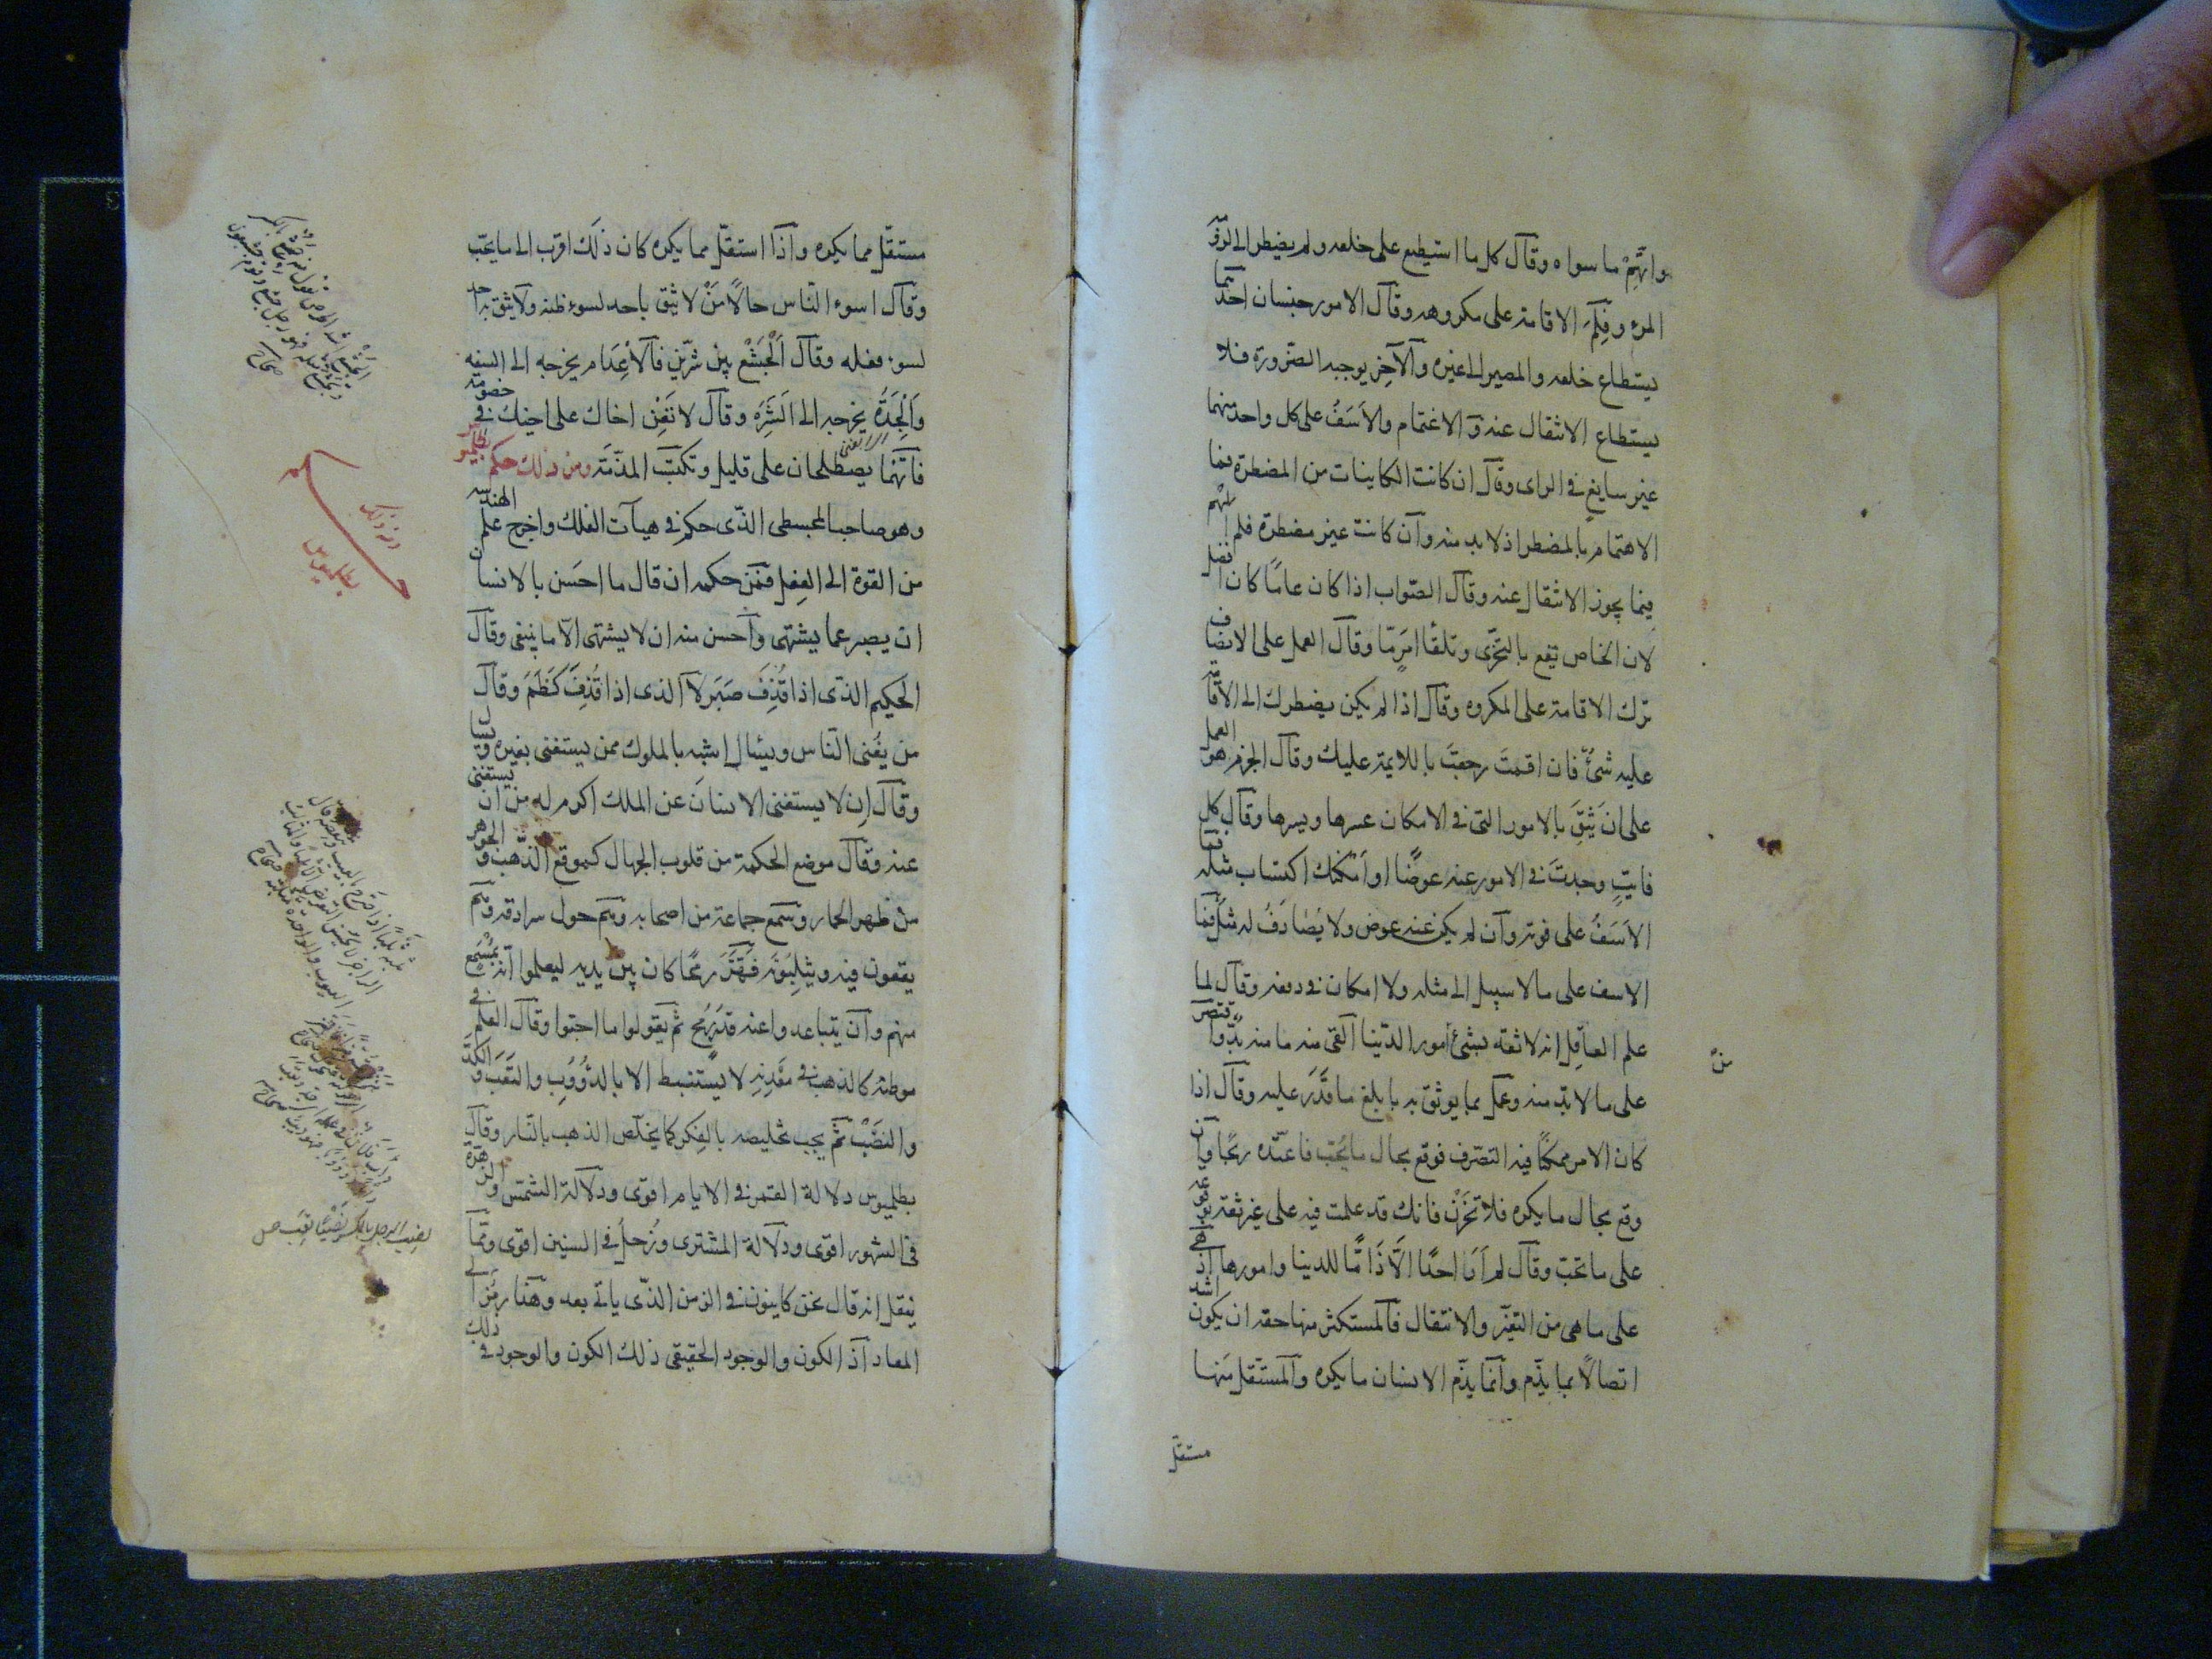 واتهم ما سواه وقال كل ما استيطع على خلعه ولم يضطر الى لزوم
المرء وفلم الاقامة على مكروهه وقال الامور جنسان احدهما
يستطاع خلعه والمصير الى غيره والآخر يوجبه الضرورة فلا
يستطاع الانتقال عنه والاغتمام والاسف على كل واحد منهما
غير سايغ في الراى وقال ان كانت الكاينات من المضطرة فما
الاهتمام بالمضطر اذ لا بد منه وان كانت غير مضطرة فلم الهم
فيما يجوز الانتقال عنه وقال الصواب اذا كان عاما كان افضل
لان الخاص يقع بالتحرى وتلقا امر ما وقال العمل على الانصاف
ترك الاقامة على المكروه وقال اذا لم يكن يضطرك الى الاقامة
عليه شئ فان اقمت رجعت باللايمة عليك وقال الحزم هو العمل
على ان تثق بالامور التى في الامكان عسرها ويسرها وقال كل
فايت وجدت في الامور عنه عوضا او امكنك اكتساب مثله فما
الاسف على فوته وان لم يكن عنه عوض ولا يصادف له مثل فما
الاسف على ما لا سبيل الى مثله ولا امكان في دفعه وقال لما
علم العاقل انه لا ثقة بشئ امور الدنيا القى منه ما منه بد واقتصر
من
على ما لا بد منه وعمل بما يوثق به بابلغ ما قدر عليه وقال اذا
كان الامر ممكنا فيه التصرف فوقع بحال ما يحب فاعتده ربحا وان
وقع بحال ما يكره فلا تحزن فانك قد علمت فيه على غير ثقة بوقوعه
على ما تحب وقال لم ار احدا الا ذاما للدنيا وامورها اذ هى
على ما هى من التغير والانتقال فالمستكثر منها حقه ان يكون اشد
اتصالا بما يذم وانما يذم الانسان ما يكره والمستقل منها
مستقل
مستقل مما يكره واذا استقل مما يكره كان ذلك اقرب الى ما يحب
وقال اسوء الناس حالا من لا يثق باحد لسوء ظنه ولا يثق به احد
لسوء فعله وقال الجشع بين شرين فالاعدام يخرجه الى السفه
والجدة يخرجه الى الشره وقال لا تغن اخاك على اخيك في خصومة
فانهما يصطلحان على قليل وتكتسب المذمة ومن ذلك حكم بطلميوس
وهو صاحب المجسطى الذى حكم في هيآت الفلك واخرج علم الهندسة
من القوة الى الفعل فمن حكمه ان قال ما احسن بالانسان
ان يصبر عما يشتهى واحسن منه ان لا يشتهى الا ما ينبغى وقال
الحكيم الذى اذا قذف صبر لا الذى اذا قذف كظم وقال
من يغنى الناس ويسال اشبه بالملوك ممن يستغنى بغيره ويسال
وقال ان لا يستغنى الانسان عن الملك اكرم له من ان يستغنى
عنه وقال موضع الحكمة من قلوب الجهال كموقع الذهب والجوهر
من ظهر الحمار وسمع جماعة من اصحابه وهم حول سرادقه وهم
يقعون فيه ويثلبونه فهز رمحا كان بين يديه ليعلموا انه بمسمع
منهم وان يتباعدوا عنه قدر رمح ثم يقولوا ما احبوا وقال العلم في
موطنه كالذهب في معدنه لا يستنبط الا بالدؤوب والتعب والكد
والنصب ثم يجب تخليصه بالفكر كما يخلص الذهب بالنار وقال
بطلميوس دلالة القمر في الايام اقوى ودلالة الشمس والزهرة
في الشهور اقوى ودلالة المشترى وزحل في السنين اقوى ومما
ينقل انه قال نحن كاينون في الزمن الذى ياتى بعد وهذا رمز الى
المعاد اذ الكون والوجود الحقيقى ذلك الكون والوجود في ذلك
ومن ذلك
حكم
بطلميوس